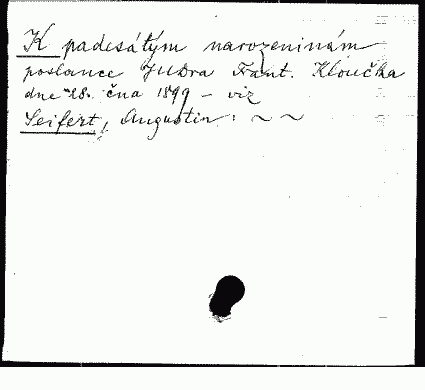 K padesátým narozeninám
poslance JUDra Frant. Kloučka
dne 28. čna 1899 - viz
Seifert, Augustin : ~ ~